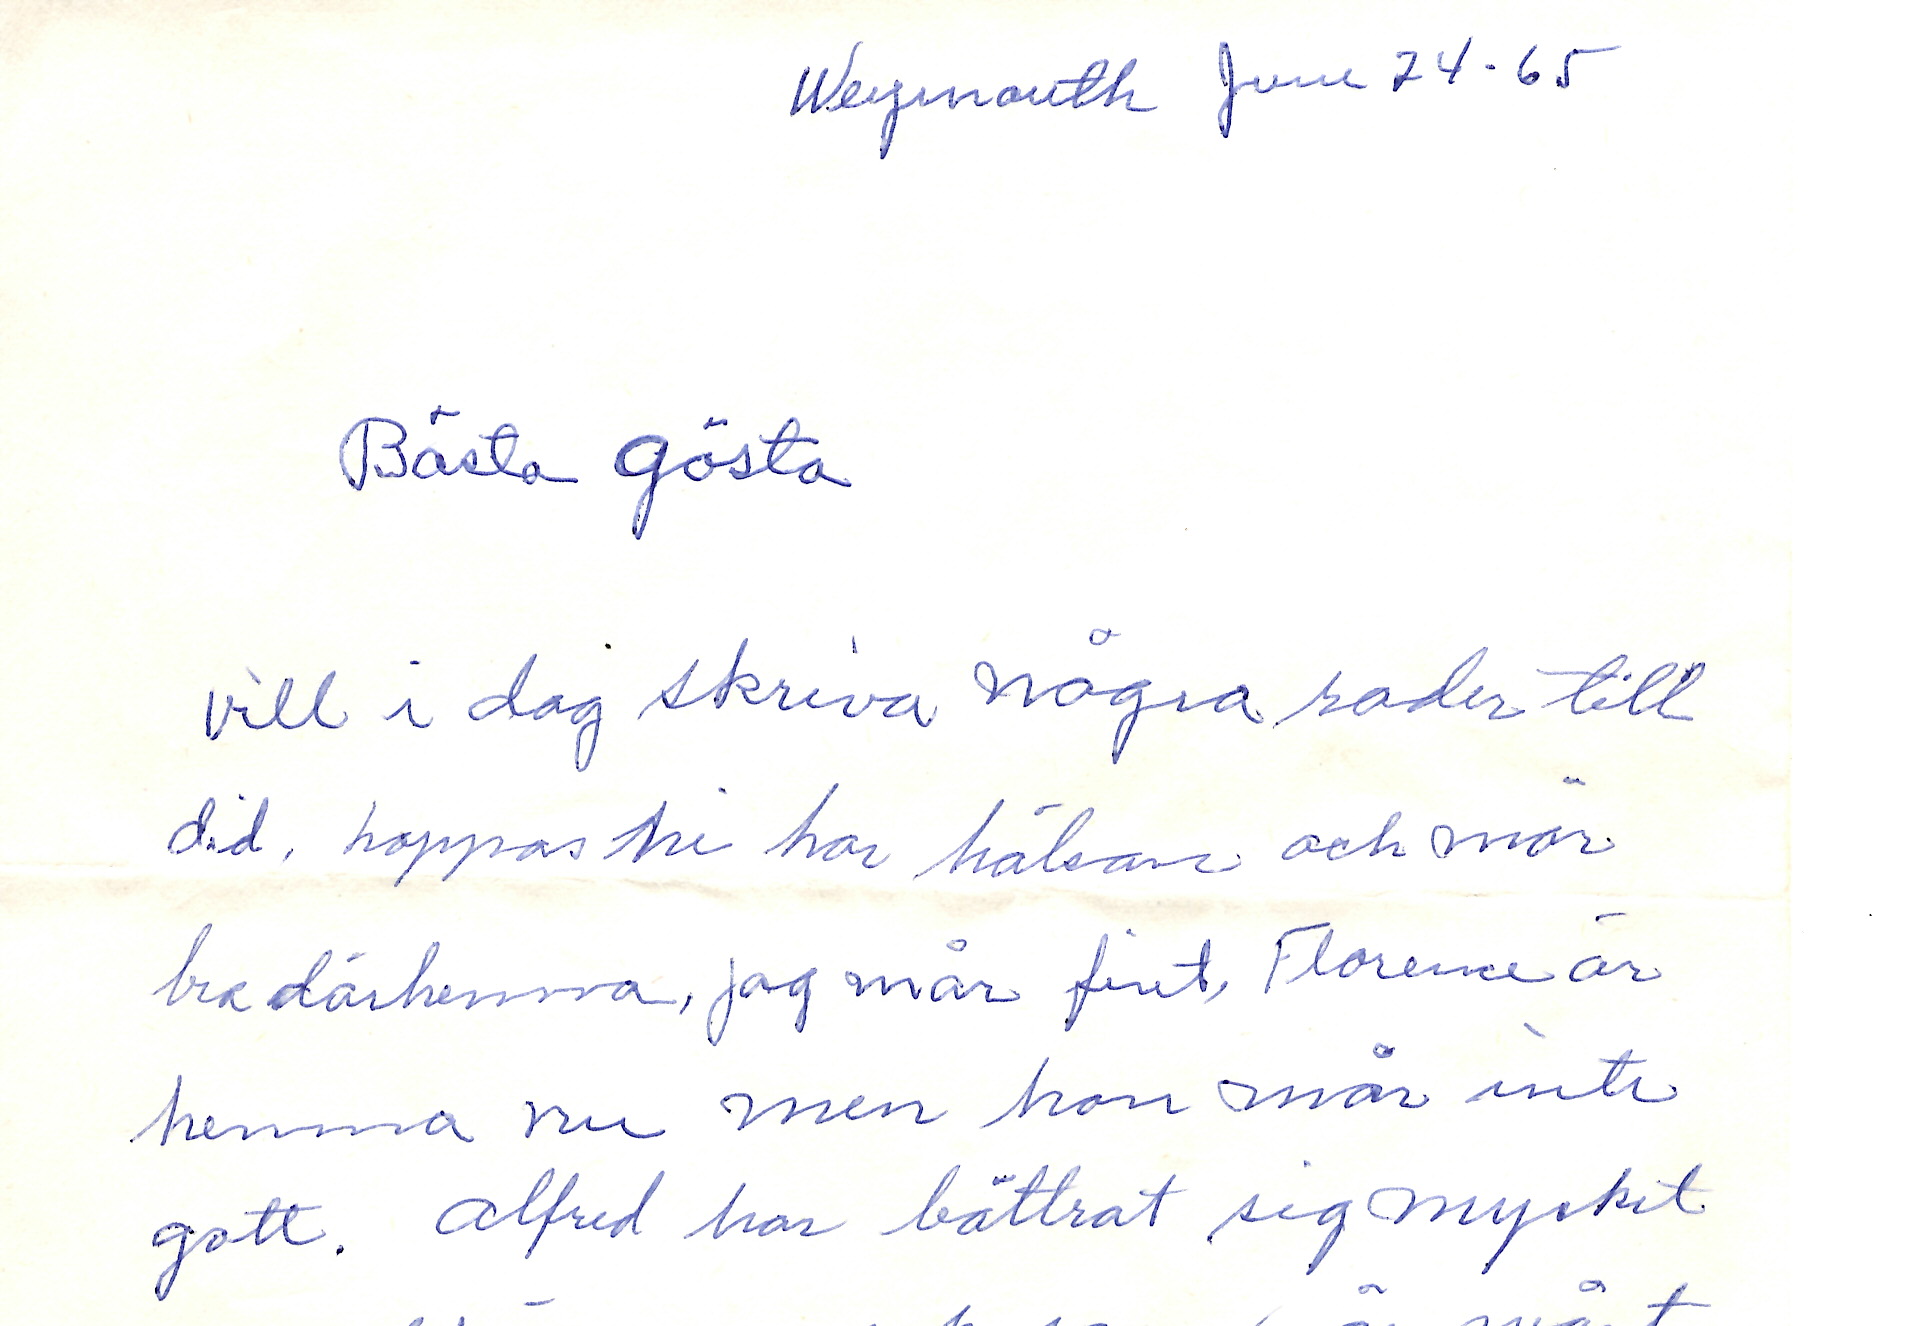 Weymouth June 24-65
Bästa Gösta
vill i dag skriva några rader till
did. hoppas Ni har hälsan och mår
bra därhemma, jag mår fint, Florence är
hemma nu men hon mår inte
gott. Alfred har bättrat sig myckit